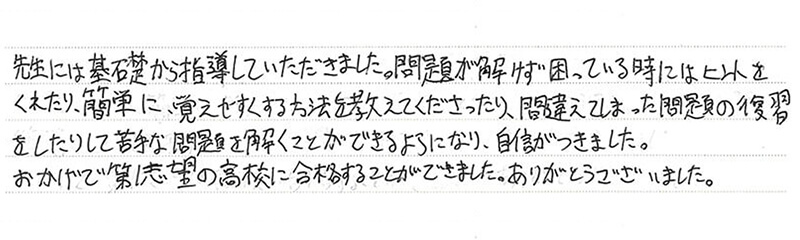 先生には基礎から指導していただきました。問題が解けず困っている時にはヒントを
くれたり、簡単に、覚えやすくする方法を教えてくださったり、間違えてしまった問題の復習
をしたりして苦手な問題を解くことができるようになり、自信がつきました。
おかげで第1志望の高校に合格することができました。ありがとうございました。